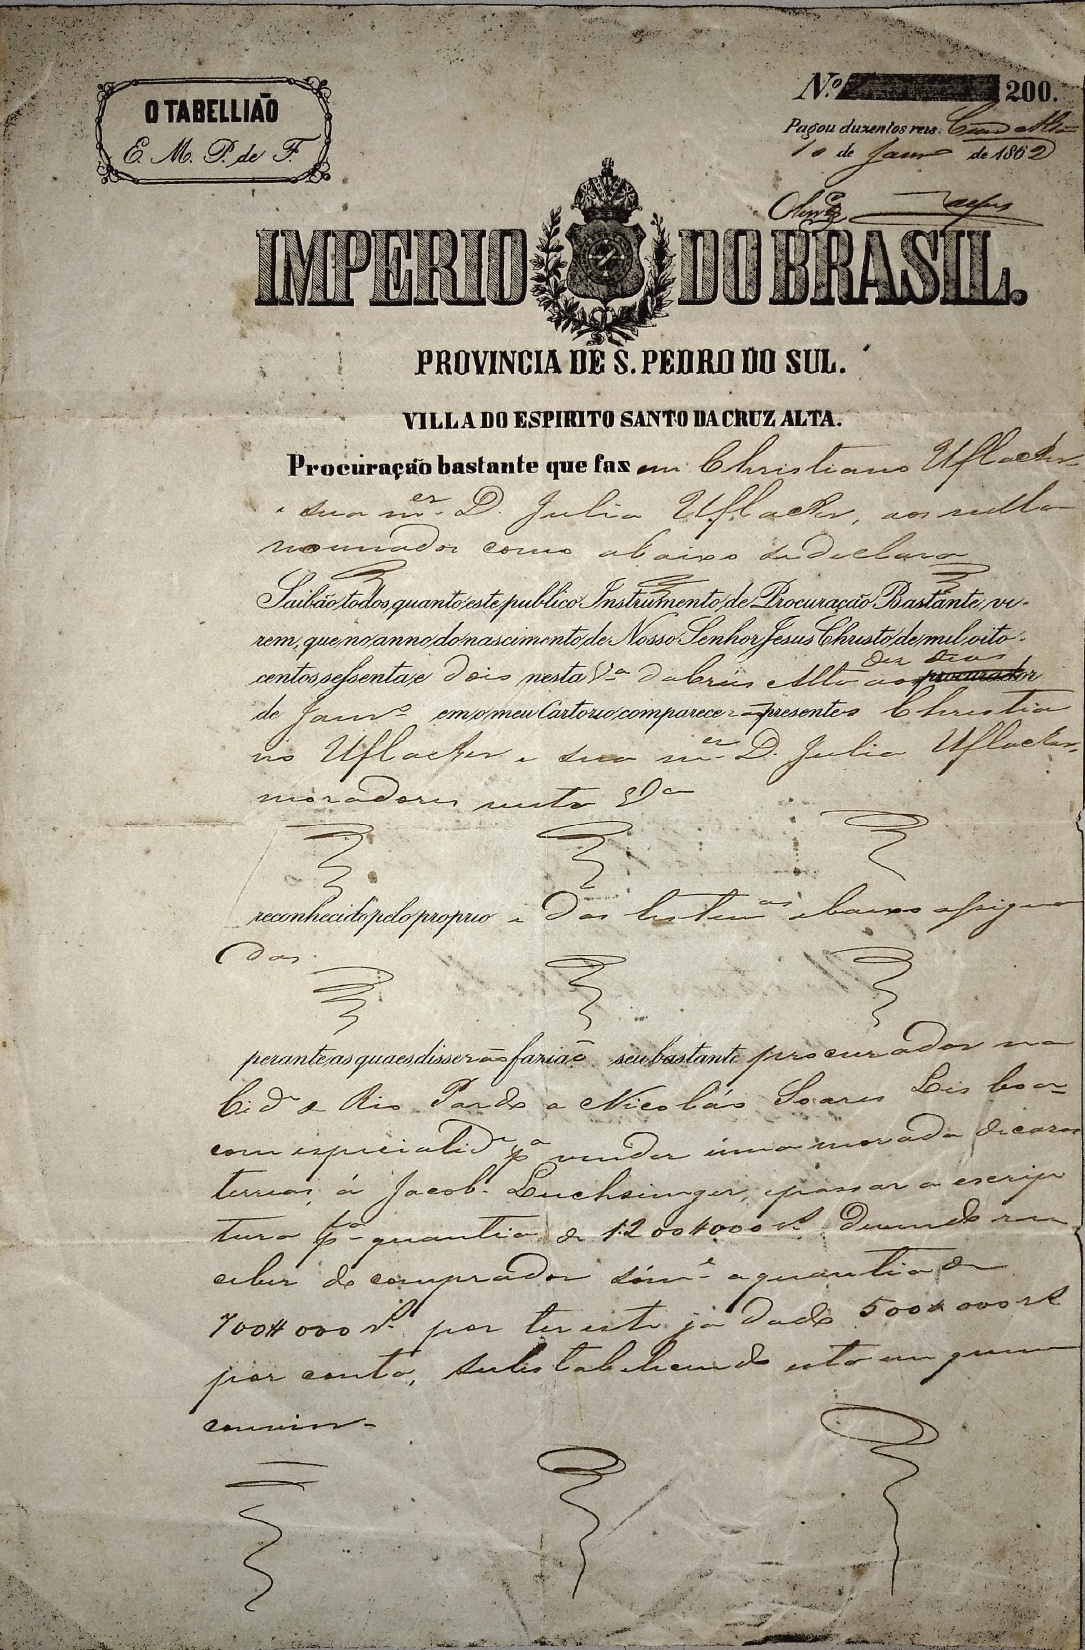 O TABELLIÃO
E. M. P. de F.
N.º 200.
Pagou duzentos reis. Cruz Alta
10 de Janro de 1862
IMPERIO DO BRASIL.
PROVINCIA DE S. PEDRO DO SUL.
VILLA DO ESPIRITO SANTO DA CRUZ ALTA.
Procuração bastante que faz em Christiano Uflacker
e sua mer D. Julia Uflacker, aos nella
nomeados como abaixo se declara
Saibão todos quanto este publico Instrumento de Procuração Bastante vi-
rem, que no anno do nascimento de Nosso Senhor Jesus Christo de mil oito-
centos sessenta e dois nesta Va da Cruz Alta aos dez dias
de Janro em o meu Cartorio comparecerão presentes Christia
no Uflacker e sua mer D. Julia Uflacker,
moradores nesta Va
reconhecido pelo proprio e das testemas abaixo assigna
das
perante as quaes disserão farião seu bastante procurador na
Cide de Rio Pardo a Nicoláo Soares Lisboa
com especialide pa vender uma morada de casas
terreas á Jacob Luchsinger, passar a escrip
tura pa quantia de 1:200#000 rs. devendo re
ceber do comprador sómte a quantia de
700#000 rs. por ter este já dado 500#000 rs
por conta, substabelecendo esta em quem
convier